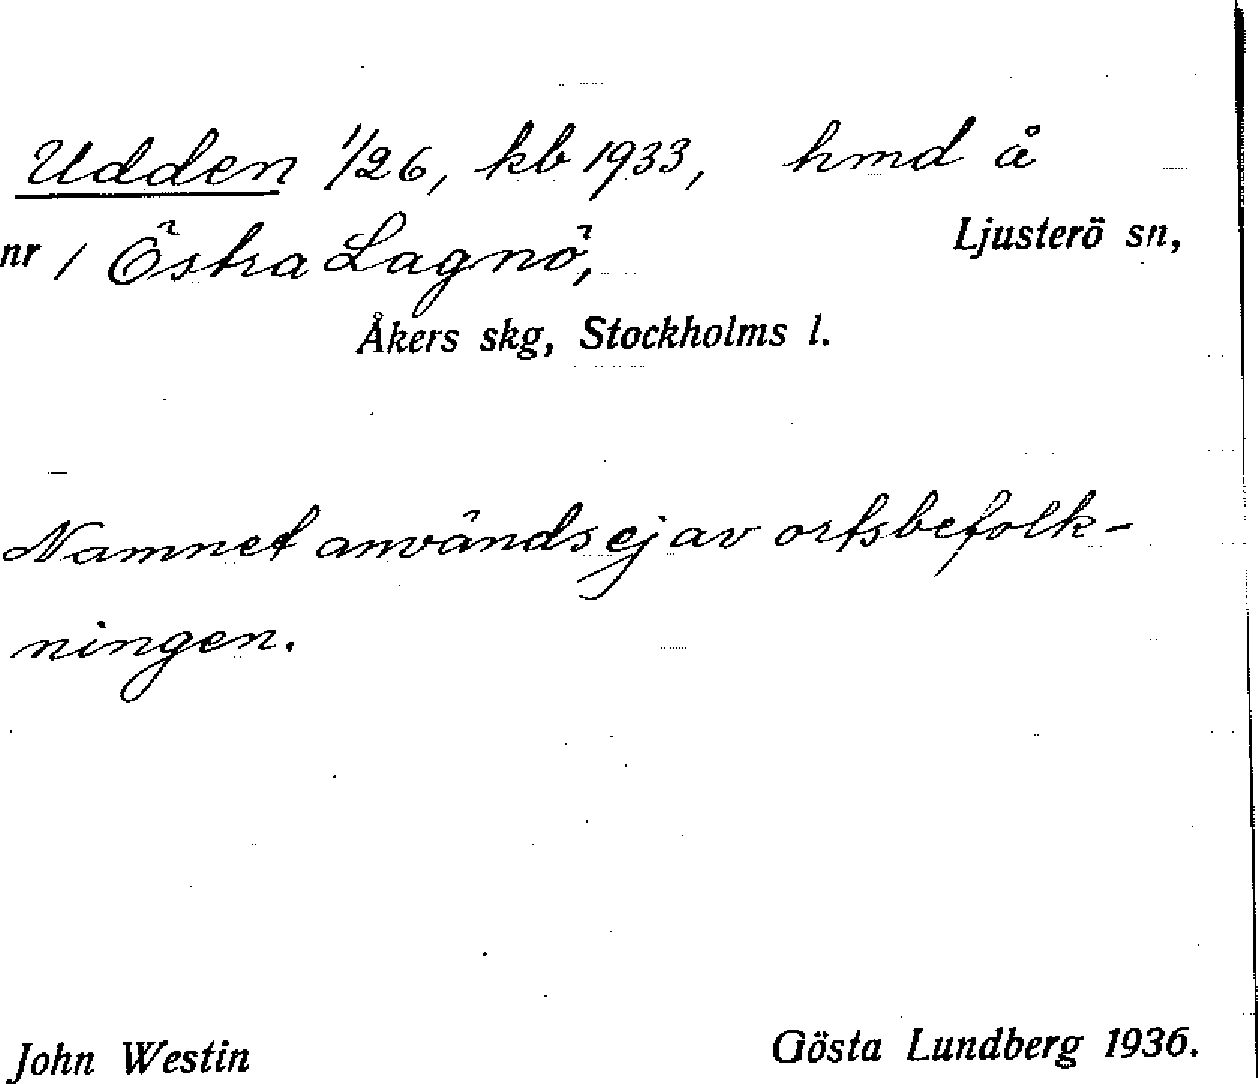 Udden 1/26, kb 1933, hmd å
nr 1 Östra Lagnö, Ljusterö sn,
Åkers skg, Stockholms l.
Namnet användsejav ortsbefolk-
ningen.
John Westin Gösta Lundberg 1936.